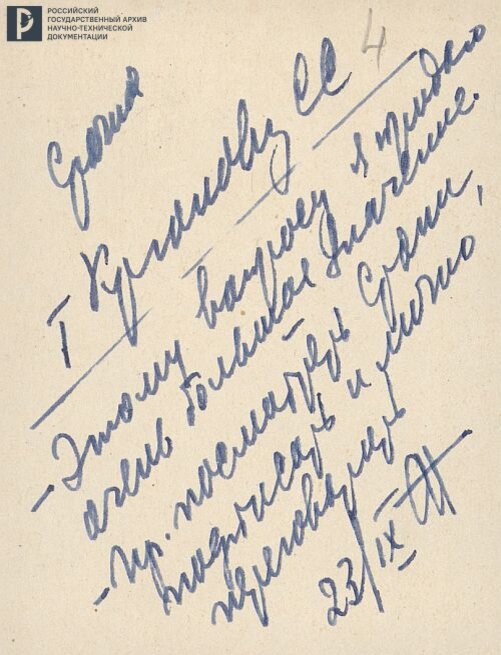 РОССИЙСКИЙ
ГОСУДАРСТВЕННЫЙ АРХИВ
НАУЧНО-ТЕХНИЧЕСКОЙ
ДОКУМЕНТАЦИИ
4
Срочно
Т Курганову СС
- Этому вопросу я придаю
очень большое значение.
- Пр. посмотреть
подписать и лично
переговорить
23/IX